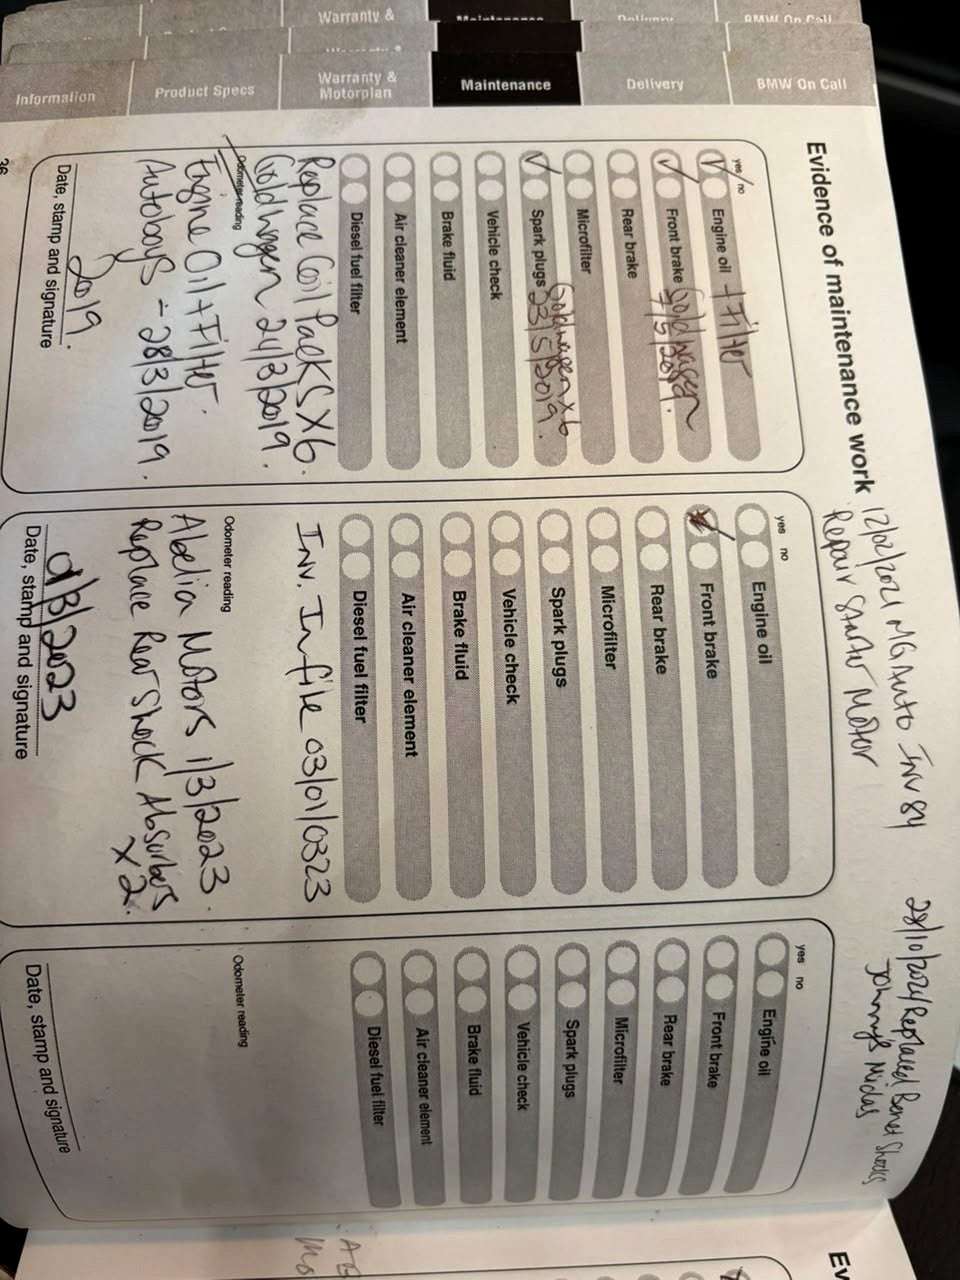 Information
Product Specs
Warranty & Motorplan
Maintenance
Delivery
BMW On Call
Evidence of maintenance work
12/02/2021 MG Auto Inv 84
Repair Starter Motor
28/10/2024 Replaced Bonet Shocks
Johnny's Midas
yes no
Engine oil + Filter
Front brake Goldwagen
7/5/2019.
Rear brake
Microfilter
Spark plugs Goldwagen x6
23/5/2019.
Vehicle check
Brake fluid
Air cleaner element
Diesel fuel filter
Replace Coil Packs X6.
Goldwagen 24/3/2019.
Odometer reading
Engine Oil + Filter.
Autoboys - 28/3/2019.
2019.
Date, stamp and signature
36
yes no
Engine oil
Front brake
Rear brake
Microfilter
Spark plugs
Vehicle check
Brake fluid
Air cleaner element
Diesel fuel filter
Inv. In file 03/01/0323
Odometer reading
Abelia Motors 1/3/2023.
Replace Rear Shock Absorbers
x2.
/3/2023
Date, stamp and signature
yes no
Engine oil
Front brake
Rear brake
Microfilter
Spark plugs
Vehicle check
Brake fluid
Air cleaner element
Diesel fuel filter
Odometer reading
Date, stamp and signature
Ev